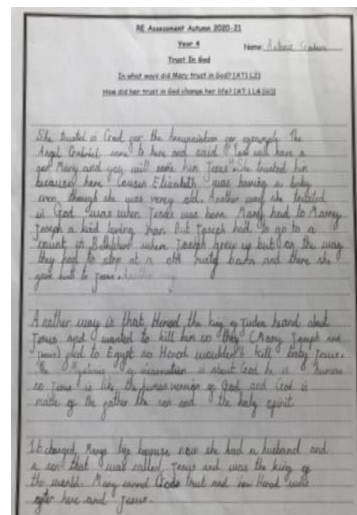 RE Assessment Autumn 2020-21
Year 4
Name:
Trust In God
In what ways did Mary trust in God? (AT1 L2)
How did her trust in God change her life? (AT 1 L4 (iii))
She trusted in God for the Annunciation for example The
Angel Gabriel came to here and said "You will have a
son Mary and you will name him Jesus". She trusted him
because here cousin Elizabeth was having a baby
even though she was very old. Another way she trusted
in God was when Jesus was born. Mary had to Marry
Joseph a kind loving man. But Joseph had to go to a
count in Bethlehem where Joseph grew up but on the way
they had to stop at a old rusty barn and there she
gave birth to Jesus.
Another way is that Herod the king of Judea heard about
Jesus and wanted to kill him so they (Mary Joseph and
Jesus) fled to Egypt so Herod wouldn't kill baby Jesus.
The Mystery of incarnation is about God he is human
so Jesus is like the human version of God and God is
made of the father the son and the holy spirit.
It changed Marys life because now she had a husband and
a son that was called Jesus and was the king of
the world. Mary earned Gods trust and how Herod were
after here and Jesus.